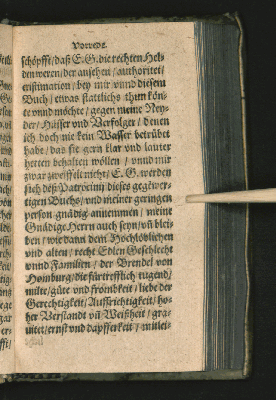 Vorrede.
schöpfft / daß E. G. die rechten Hel-
den weren / der ansehen / authoritet /
existimation / bey mir vnnd diesem
Buch / etwas stattlichs thun kön-
te vnnd möchte / gegen meine Ney-
der / Hässer vnd Verfolger / denen
ich doch nie kein Wasser betrübet
habe / das sie gern klar vnd lauter
hetten behalten wöllen / vnnd mir
zwar zweiffelt nicht / E. G. werden
sich deß Patrocinij dieses gegēwer-
tigen Buchs / vnd meiner geringen
person gnädig annemmen / meine
Gnädige Herrn auch seyn / vñ blei-
ben / wie dann dem Hochlöblichen
vnd alten / recht Edlen Geschlecht
vnnd Familien / der Brendel von
Homburg / die fürtrefflich tugend /
milte / güte vnd frombkeit / liebe der
Gerechtigkeit / Auffrichtigkeit / ho-
her Verstandt vñ Weißheit / gra-
uitet / ernst vnd dapfferkeit /